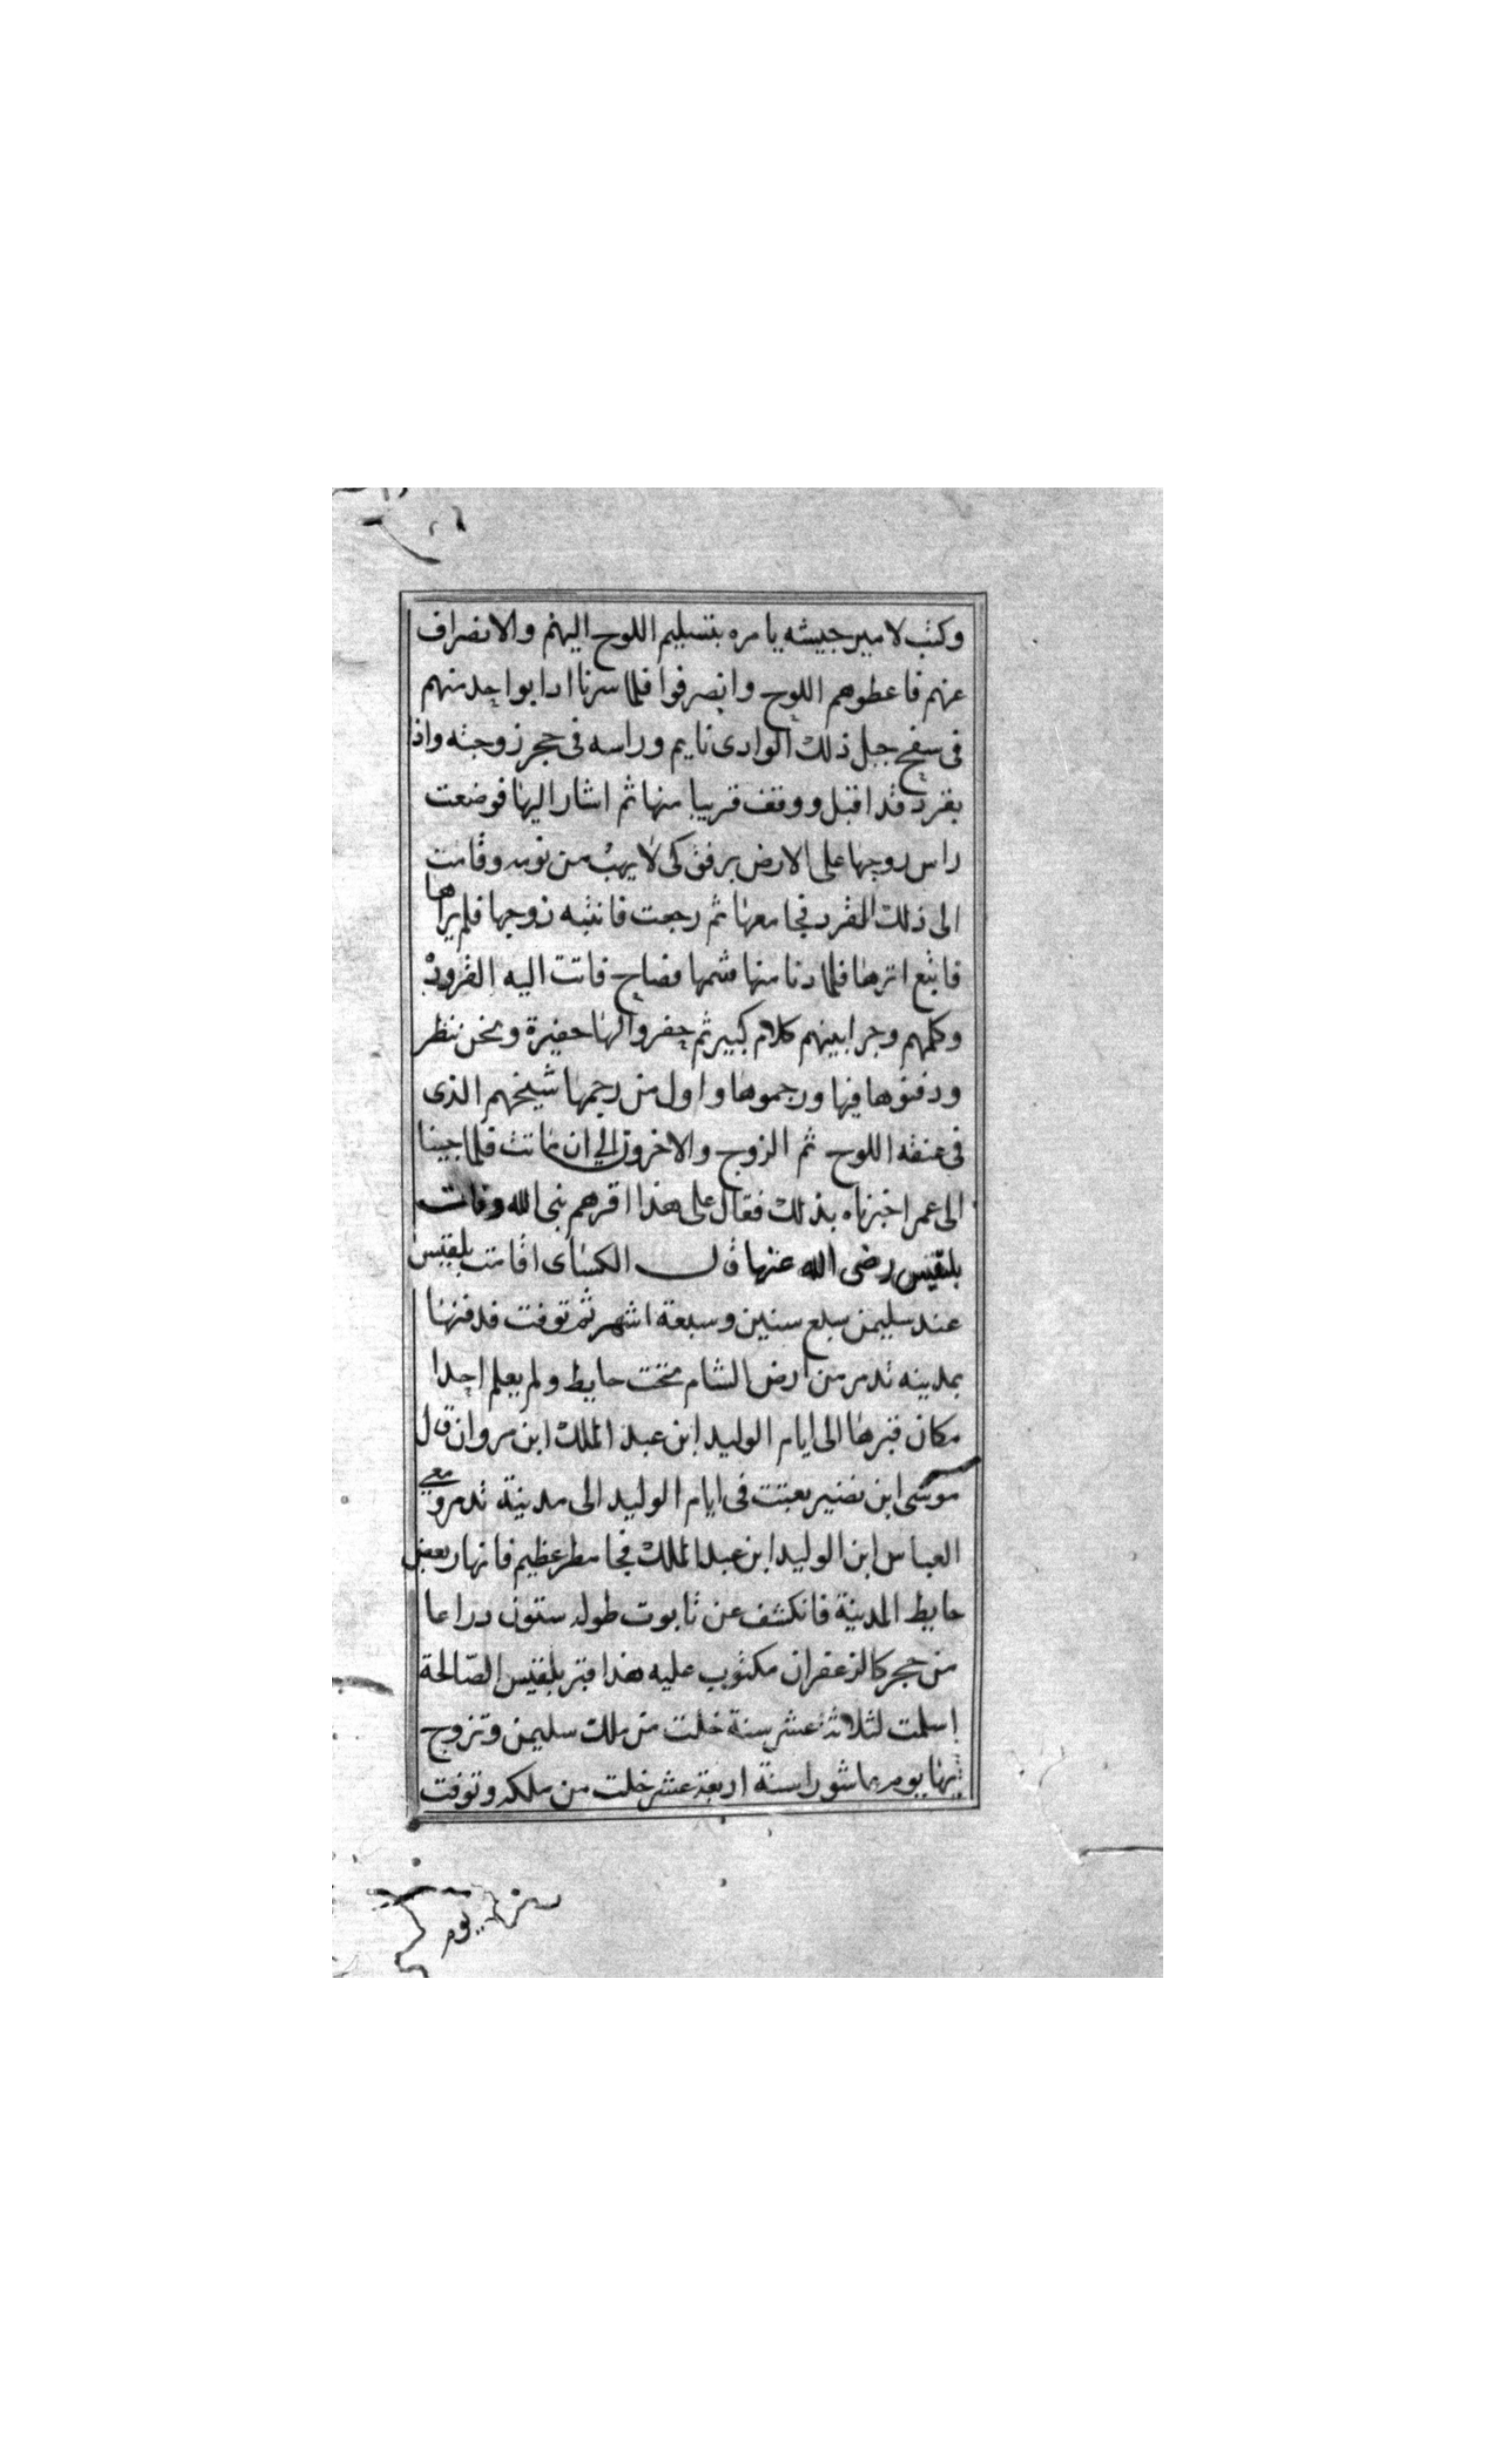 وكتب لامير جيشه يامره بتسليم اللوح اليهم والانصراف
عنهم فاعطوهم اللوح وانصرفوا فلما سرنا اذا بواحد منهم
فى سفح جبل ذلك الوادى نايم وراسه فى حجر زوجته واذا
بقرد قد اقبل ووقف قريبا منها ثم اشار اليها فوضعت
راس زوجها على الارض برفق كى لا يهب من نومه وقامت
الى ذلك القرد فجامعها ثم رجعت فانتبه زوجها فلم يراها
فاتبع اثرها فلما دنا منها شمها فصاح فاتت اليه القرود
وكلمهم وجرا بينهم كلام كبير ثم حفروا لها حفيرة ونحن ننظر
ودفنوها فيها ورجموها واول من رجمها شيخهم الذى
فى عنقه اللوح ثم الزوج والاخرون الى ان ماتت فلما جينا
الى عمر اخبرناه بذلك فقال على هذا اقرهم نبى الله وفات
بلقيس رضى الله عنها قال الكساى اقامت بلقيس
عند سليمن سبع سنين وسبعة اشهر ثم توفت فدفنها
بمدينه تدمر من ارض الشام تحت حايط ولم يعلم احدا
مكان قبرها الى ايام الوليد ابن عبد الملك ابن مروان قال
موسى ابن نصير بعثت فى ايام الوليد الى مدينة تدمر ومعى
العباس ابن الوليد ابن عبد الملك فجا مطر عظيم فانهار بعض
حايط المدينة فانكشف عن تابوت طوله ستون دراعا
من حجر كالزعفران مكتوب عليه هذا قبر بلقيس الصالحة
اسلمت لثلاثة عشر سنة خلت من ملك سليمن وتزوج
بها يوم عاشورا سنة اربعة عشر خلت من ملكه وتوفت
يوم